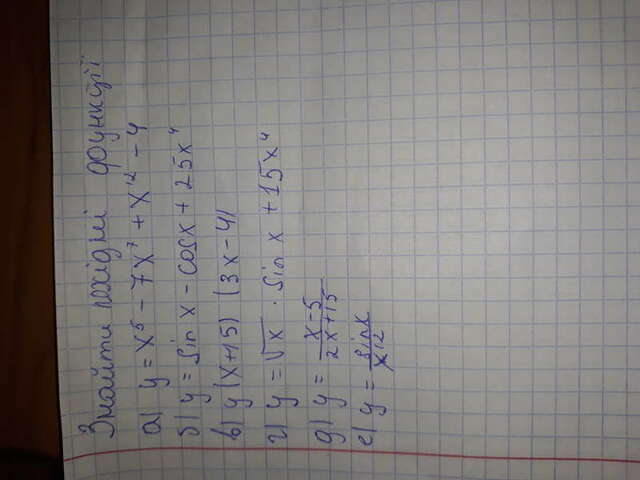 Знайти похідні функції
а) y = x⁵ - 7x⁷ + x¹² - 4
б) y = sin x - cosx + 25x⁴
в) y (x+15) (3x-4)
г) y = √x · sin x + 15x⁴
д) y = x-5 / 2x+15
е) y = sinx / x12